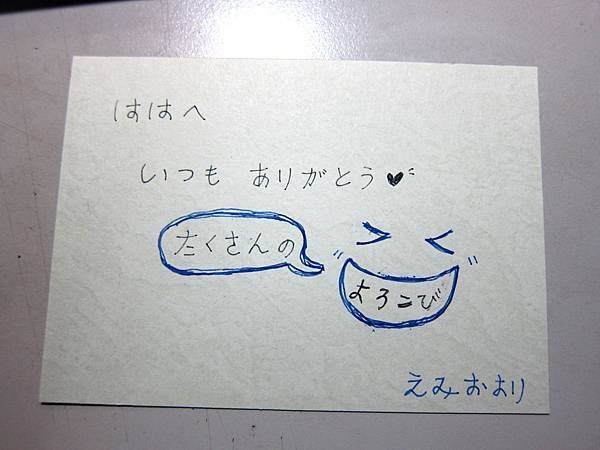 ははへ
いつも ありがとう♥
たくさんの
よろこび
えみおより